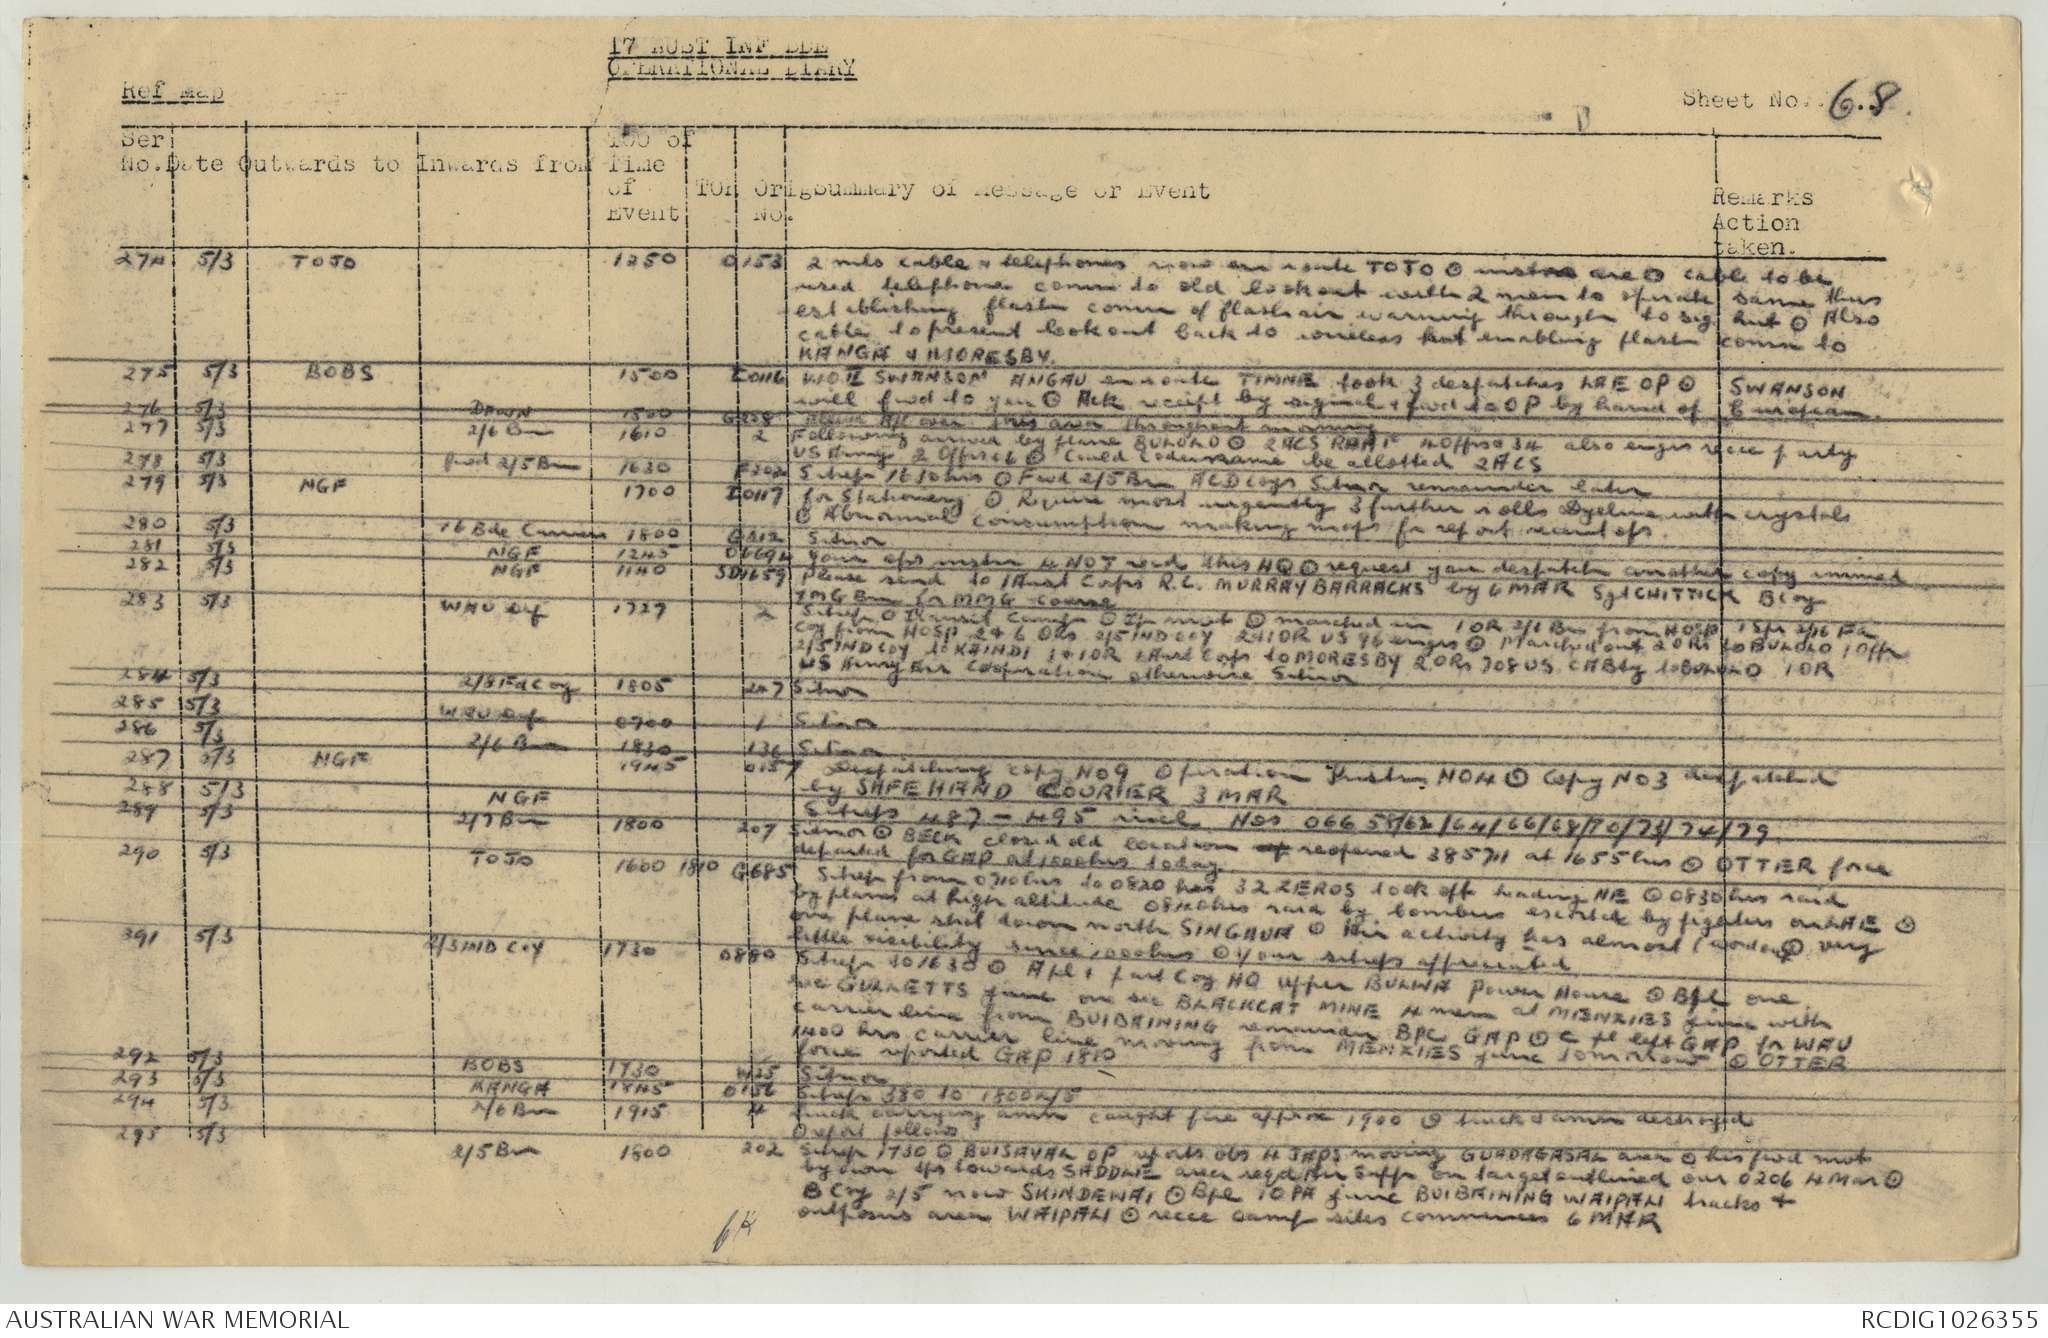 17 AUST INF BDE
OPERATIONAL DIARY
Ref Map
Sheet No. 68.
Ser No. Date Outwards to Inwards from TOO of Time of Event TOR Orig No. Summary of Message or Event Remarks Action taken.
274 5/3 TOJO 1250 O153 2 mls cable & telephones now en route TOJO ⊙ are ⊙ cable to be
used telephone comn to old lookout with 2 men to operate same thus
establishing flash comn of flash air warning through to sig hut ⊙ Also
cable to present lookout back to wireless hut enabling flash comn to
KANGA & MORESBY.
275 5/3 BOBS 1500 IO116 WO II SWANSON ANGAU en route TIMNE took 3 despatches LAE OP ⊙ SWANSON
will fwd to you ⊙ Ack receipt by signal & fwd to OP by hand of European.
276 5/3 DAWN 1500 G258 A/C over this area throughout morning
277 5/3 2/6 Bn 1610 2 Following arrived by plane BULOLO ⊙ 2 ACS RAAF 4 Offrs & 34 also engrs recce party
US Army 2 Offrs & 6 ⊙ Could codename be allotted 2 ACS
278 5/3 fwd 2/5 Bn 1630 F202 Sitrep 1610 hrs ⊙ Fwd 2/5 Bn ACD Coys Sitnor remainder later
279 5/3 NGF 1700 IO117 for Stationery ⊙ Require most urgently 3 further rolls Dyeline with crystals
⊙ Abnormal consumption making maps for report recent ops.
280 5/3 16 Bde Carriers 1800 G212 Sitnor
281 5/3 NGF 1245 O6694 Your ops instn 4 NOT recd this HQ ⊙ request you despatch another copy immed
282 5/3 NGF 1140 SD1659 Please send to 1 Aust Corps R.C. MURRAY BARRACKS by 6 MAR Sgt CHITTICK B Coy
7 MG Bn for MMG course
283 5/3 WAU Def 1727 2 Sitrep ⊙ Transit Camp ⊙ ⊙ marched in 1 OR 2/6 Bn from HOSP 1 Spr 2/16 Fd
Coy from HOSP 2 & 6 ORs 2/5 IND COY 2 & 10R US 96 engrs ⊙ Marched out 2 ORs to BULOLO 1 Offr
2/5 IND COY to KAINDI 1 & 1 OR 1 Aust Corps to MORESBY 2 ORs 708 US CA Bty to BULOLO 1 OR
US Army Air Cooperation otherwise Sitnor
284 5/3 2/8 Fd Coy 1805 247 Sitnor
285 5/3 WAU Def 0700 1 Sitnor
286 5/3 2/6 Bn 1830 136 Sitnor
287 5/3 NGF 1945 O157 Despatching copy NO 9 Operation Instn. NO 4 ⊙ Copy NO 3 despatched
by SAFE HAND COURIER 3 MAR
288 5/3 NGF Sitreps 487 - 495 incl. Nos 066 58/62/64/66/68/70/73/74/79
289 5/3 2/7 Bn 1800 207 Sitnor ⊙ BECK closed old location reopened 385711 at 1655 hrs ⊙ OTTER force
departed for GAP at 1000 hrs today
290 5/3 TOJO 1600 1810 G685 Sitrep from 0710 hrs to 0820 hrs 32 ZEROS took off heading NE ⊙ 0830 hrs raid
by planes at high altitude 0840 hrs raid by bombers escorted by fighters on LAE ⊙
one plane shot down north SINGAUA ⊙ Air activity has almost ⊙ very
little visibility since 1000 hrs ⊙ your sitreps appreciated
391 5/3 2/3 IND COY 1730 O880 Sitrep to 1630 ⊙ A pl & part Coy HQ upper BULWA Power House ⊙ B pl one
sec GULLETTS junc one sec BLACKCAT MINE 4 men at MENZIES junc with
carrier line from BUIBAINING remainder B PL GAP ⊙ C pl left GAP for WAU
1400 hrs carrier line moving from MENZIES junc tomorrow ⊙ OTTER
force reported GAP 1810
292 5/3 BOBS 1730 W25 Sitnor
293 5/3 KANGA 1845 O156 Sitrep 380 to 1800 K/5
294 5/3 2/6 Bn 1915 4 truck carrying amn caught fire approx 1900 ⊙ truck & amn destroyed
⊙ report follows
295 5/3 2/5 Bn 1800 202 Sitrep 1730 ⊙ BUISAVAL OP reports obs 4 JAPS moving GUADAGASAL area ⊙ his fwd mot
by own tps towards SADDLE area reqd Air Supp on target outlined our 0206 4 Mar ⊙
B Coy 2/5 now SKINDEWAI ⊙ B pl 10 PA junc BUIBAINING WAIPALI tracks &
outposns area WAIPALI ⊙ recce camp sites commences 6 MAR
6K
AUSTRALIAN WAR MEMORIAL
RCDIG1026355